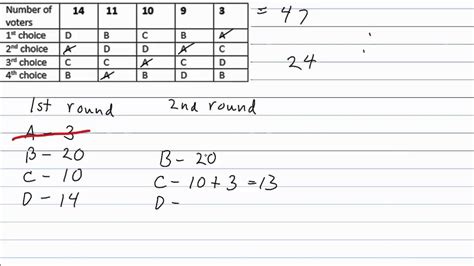 Number of voters 14 11 10 9 3 = 47
1st choice D B C B A
2nd choice A D D A C
24
3rd choice C C A C D
4th choice B A B D B
1st round 2nd round
A - 3
B - 20 B - 20
C - 10 C - 10 + 3 = 13
D - 14 D -